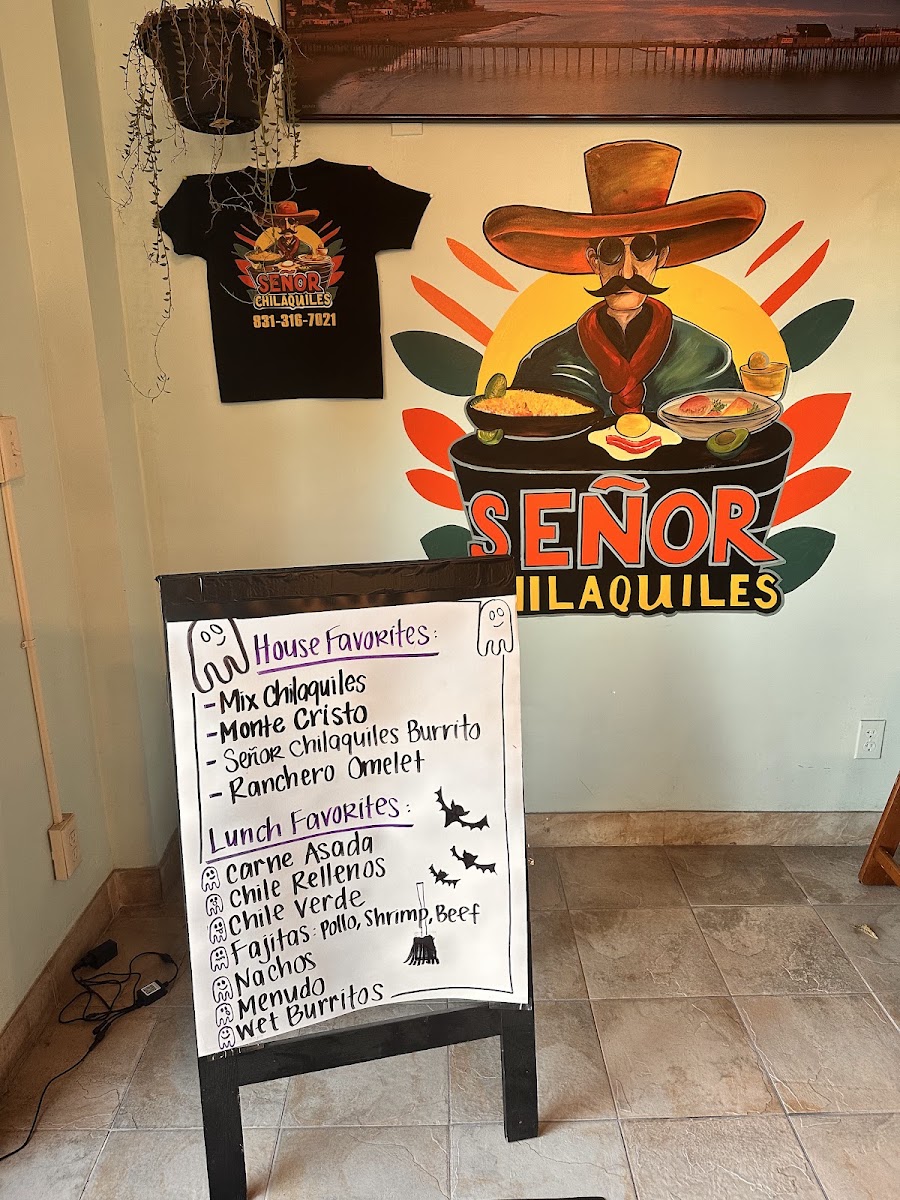 SEÑOR
CHILAQUILES
831-316-7021
SEÑOR
CHILAQUILES
House Favorites:
- Mix Chilaquiles
- Monte Cristo
- Señor Chilaquiles Burrito
- Ranchero Omelet
Lunch Favorites:
Carne Asada
Chile Rellenos
Chile Verde
Fajitas: Pollo, Shrimp, Beef
Nachos
Menudo
Wet Burritos